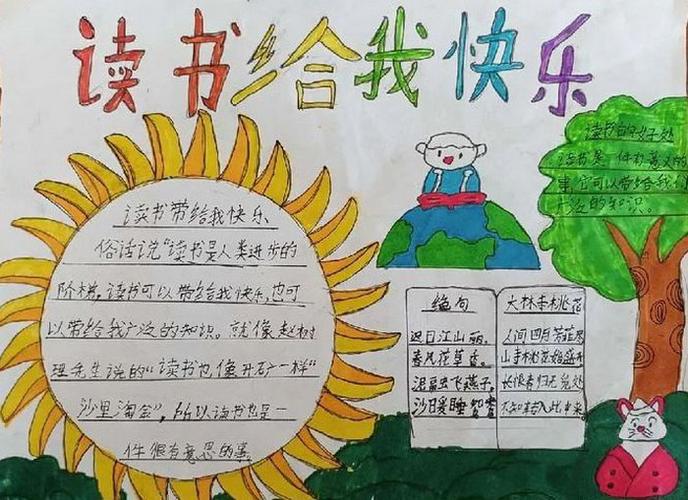 读书给我快乐
读书带给我快乐
俗话说"读书是人类进步的
阶梯,读书可以带给我快乐,也可
以带给我广泛的知识。就像赵树
理先生说的"读书也像开矿一样"
沙里淘金",所以读书也是一
件很有意思的事
读书的好处
读书是一件有意义的
事,它可以带给我们
广泛的知识。
绝句
迟日江山丽,
春风花草香。
泥融飞燕子,
沙日爰睡鸳鸯
大林寺桃花
人间四月芳菲尽
山寺桃花始盛开
长恨春归无觅处
不知转入此中来。